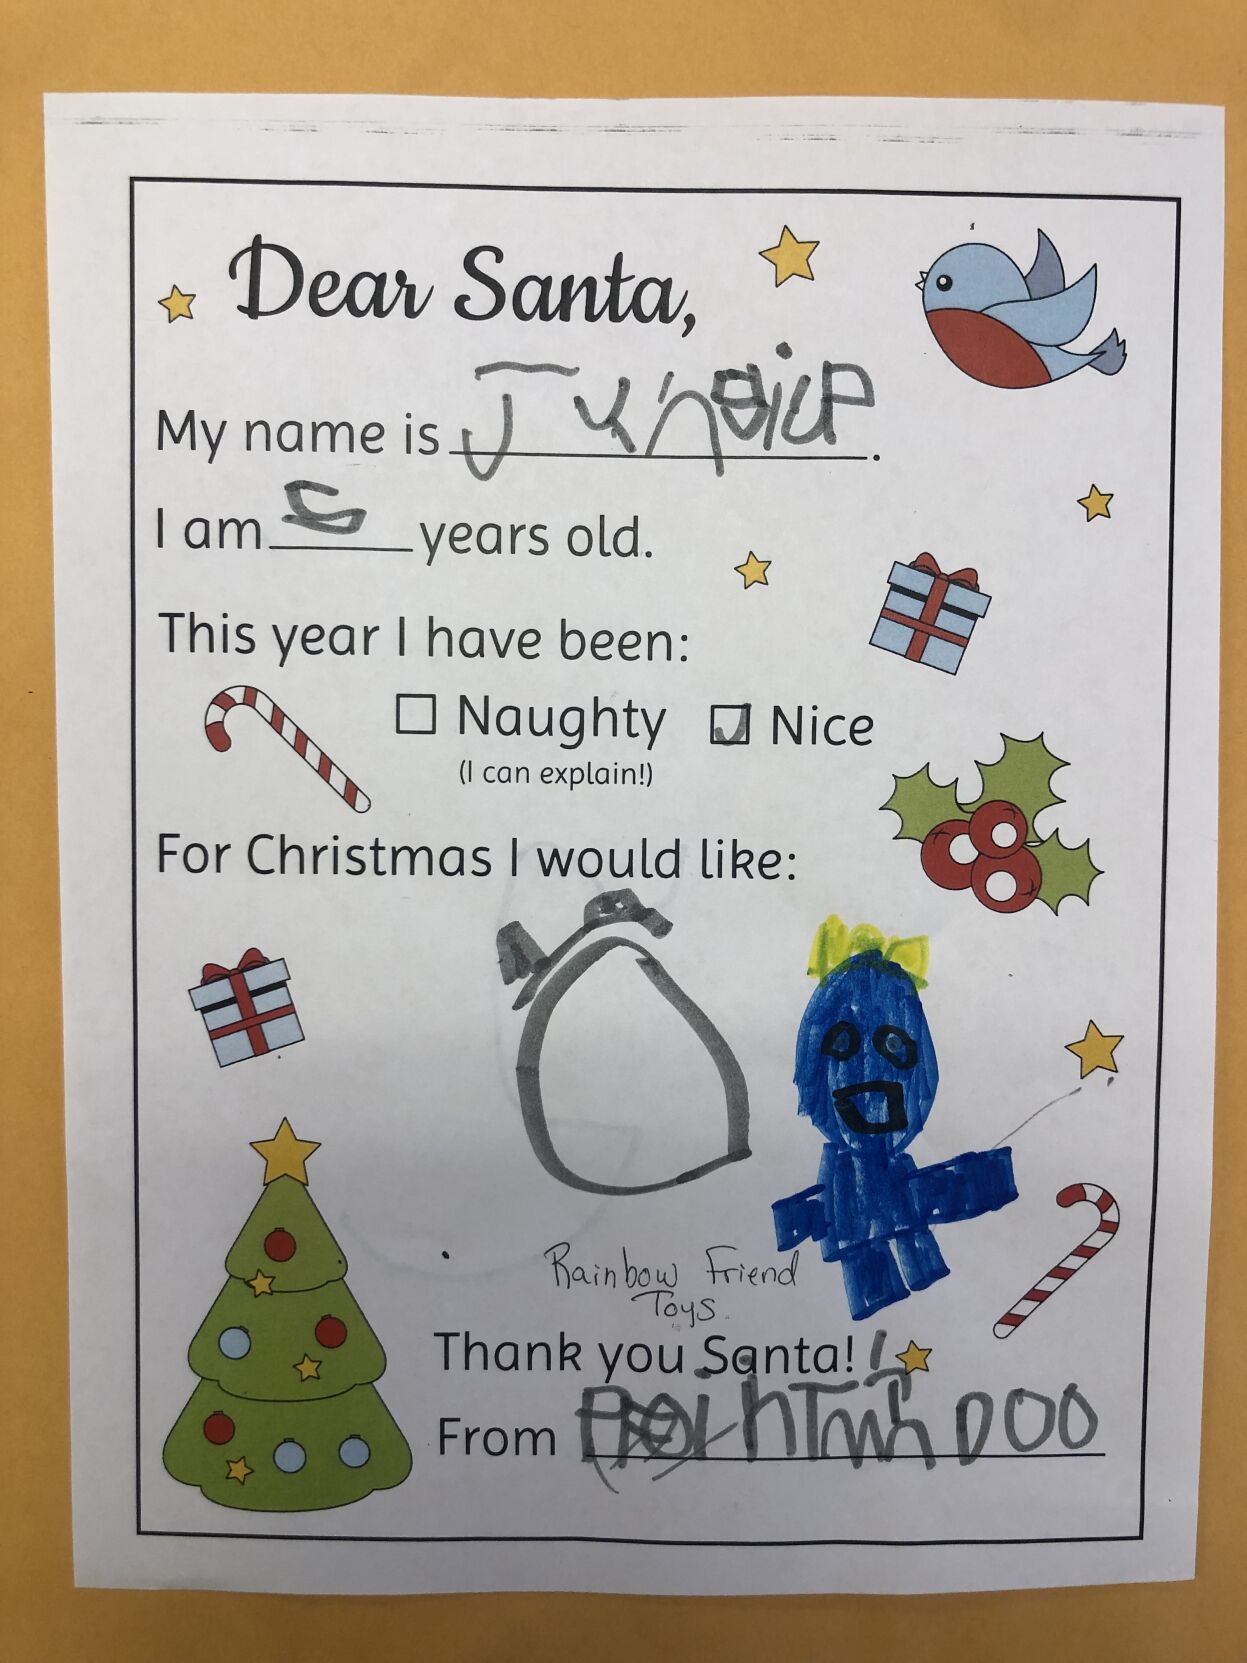 Dear Santa,
My name is
I am 5 years old.
This year I have been:
Naughty Nice
(I can explain!)
For Christmas I would like:
Rainbow Friend
Toys.
Thank you Santa!
From